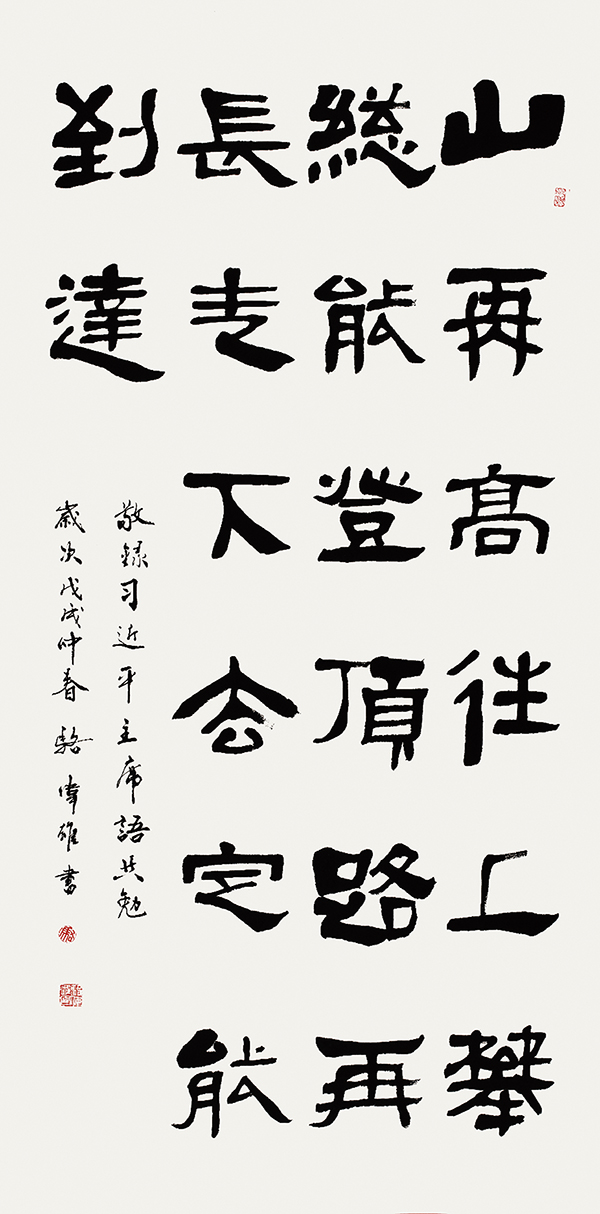 山再高往上攀
總能登頂路再
長走下去定能
到達
敬錄习近平主席語共勉
歲次戊戌仲春 駱偉雄書